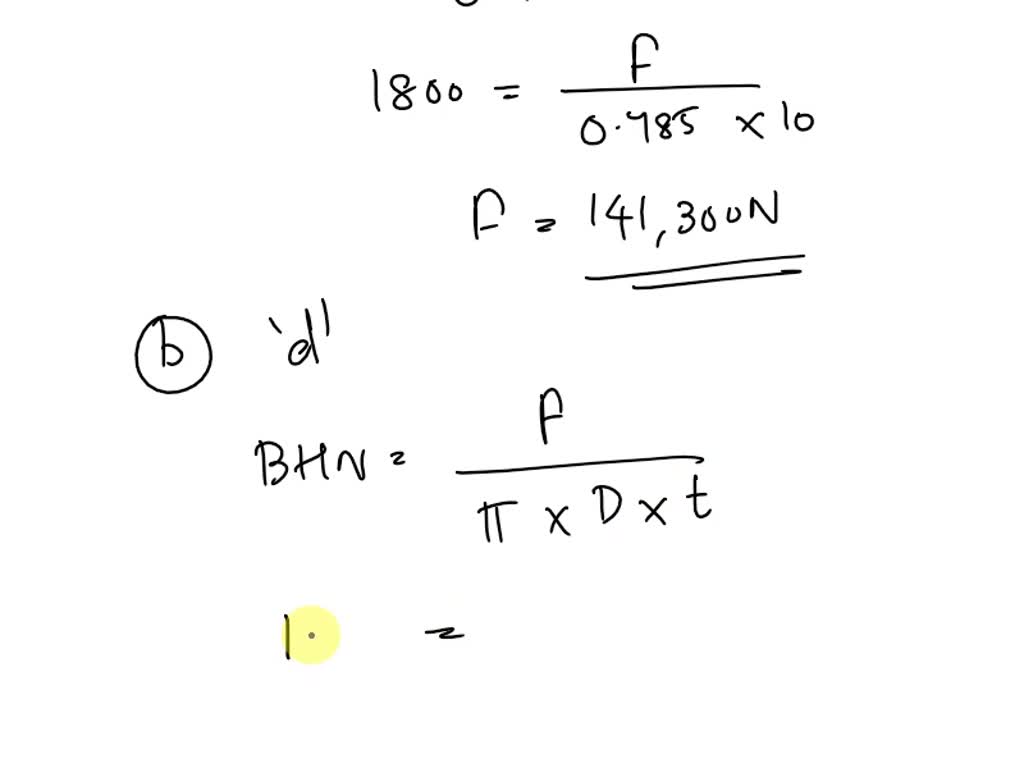 1800 = F / 0.785 x 10
F = 141,300N
b 'd'
BHN = F / π x D x t
1 =